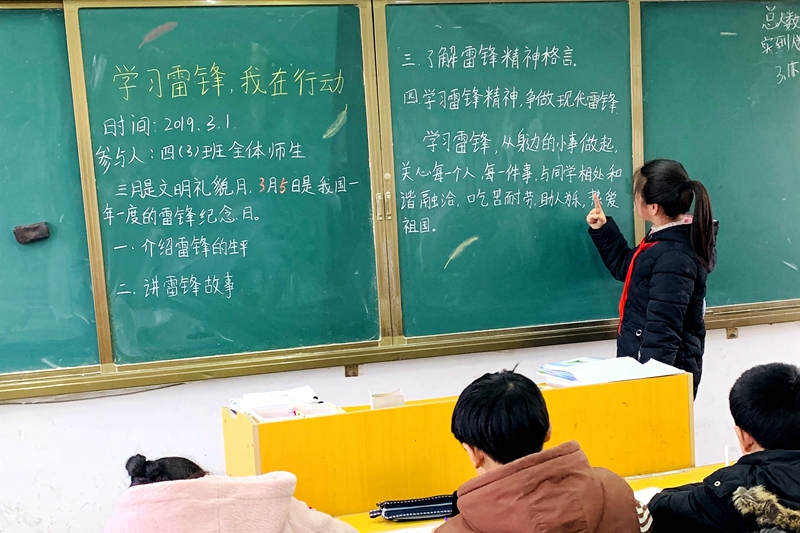 学习雷锋，我在行动
时间：2019.3.1
参与人：四(3)班全体师生
三月是文明礼貌月，3月5日是我国一
年一度的雷锋纪念日。
一、介绍雷锋的生平
二、讲雷锋故事
三、了解雷锋精神格言。
四、学习雷锋精神，争做现代雷锋
学习雷锋，从身边的小事做起，
关心每个人、每一件事，与同学相处和
谐融洽，吃苦耐劳，助人为乐，热爱
祖国。
总人数
实到